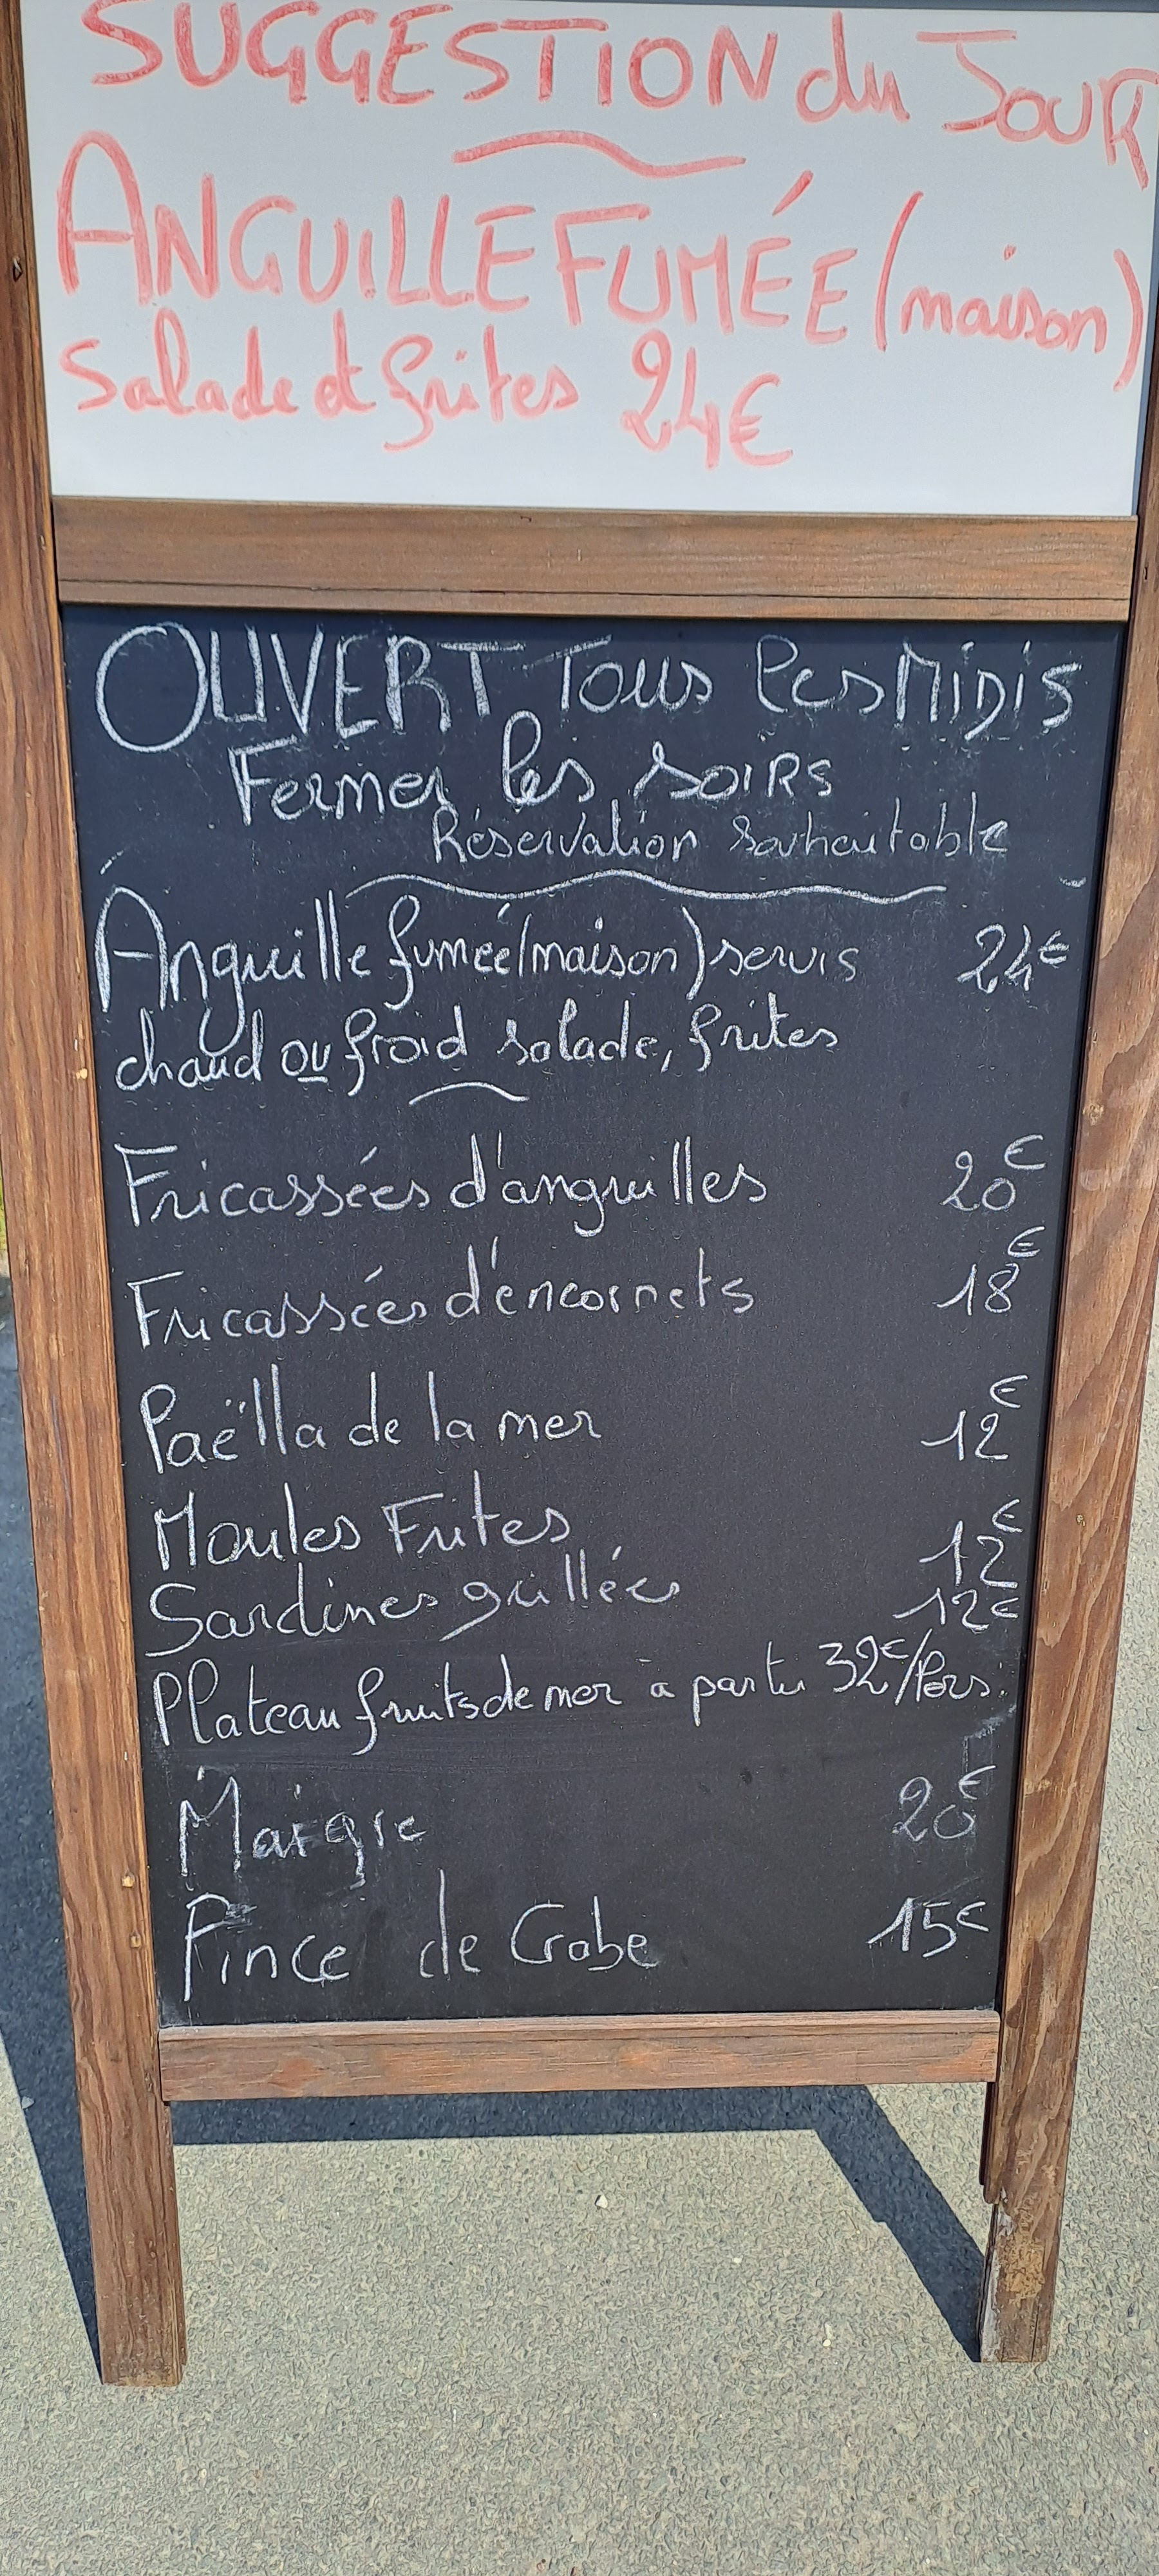 SUGGESTION du JOUR
ANGUILLE FUMÉE (maison)
Salade et frites 24€
OUVERT Tous les MIDIS
Fermer les soirs
Réservation souhaitable
Anguille fumée (maison) servis 24€
chaud ou froid salade, frites
Fricassées d'anguilles 20€
Fricassées d'encornets 18€
Paëlla de la mer 12€
Moules Frites 12€
Sardines grillées 12€
Plateau fruits de mer à partir 32€/Pers.
Maigre 20€
Pince de Crabe 15€